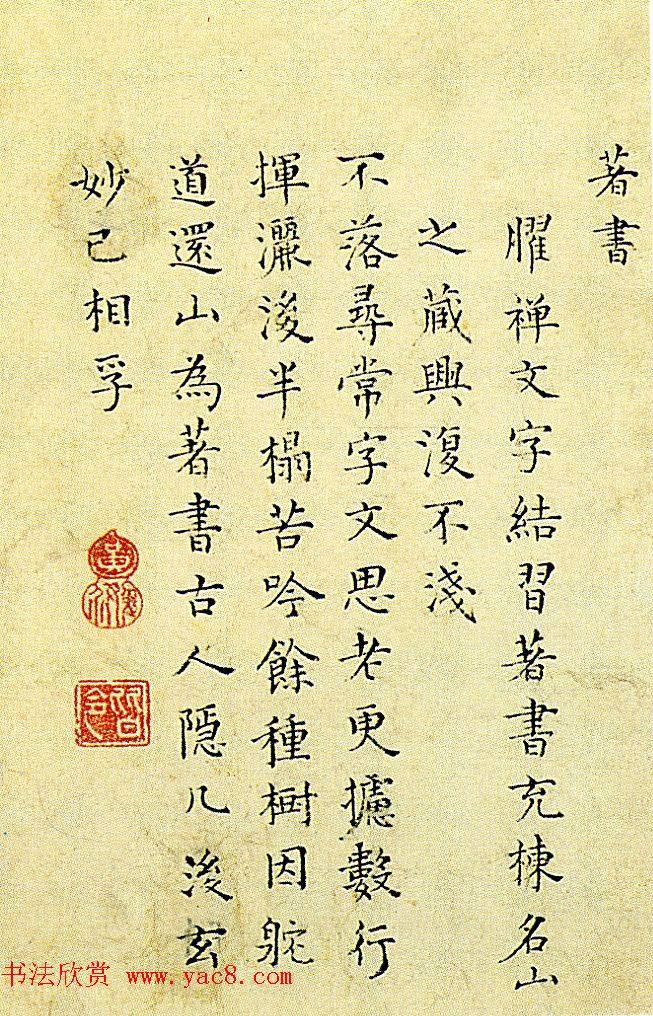 著書
臞禅文字結習著書充棟名山
之蔵興復不淺
不落尋常字文思老更攄數行
揮灑後半榻苦吟餘種樹因駝
道還山為著書古人隱几後玄
妙已相孚
书法欣赏 www.yac8.com